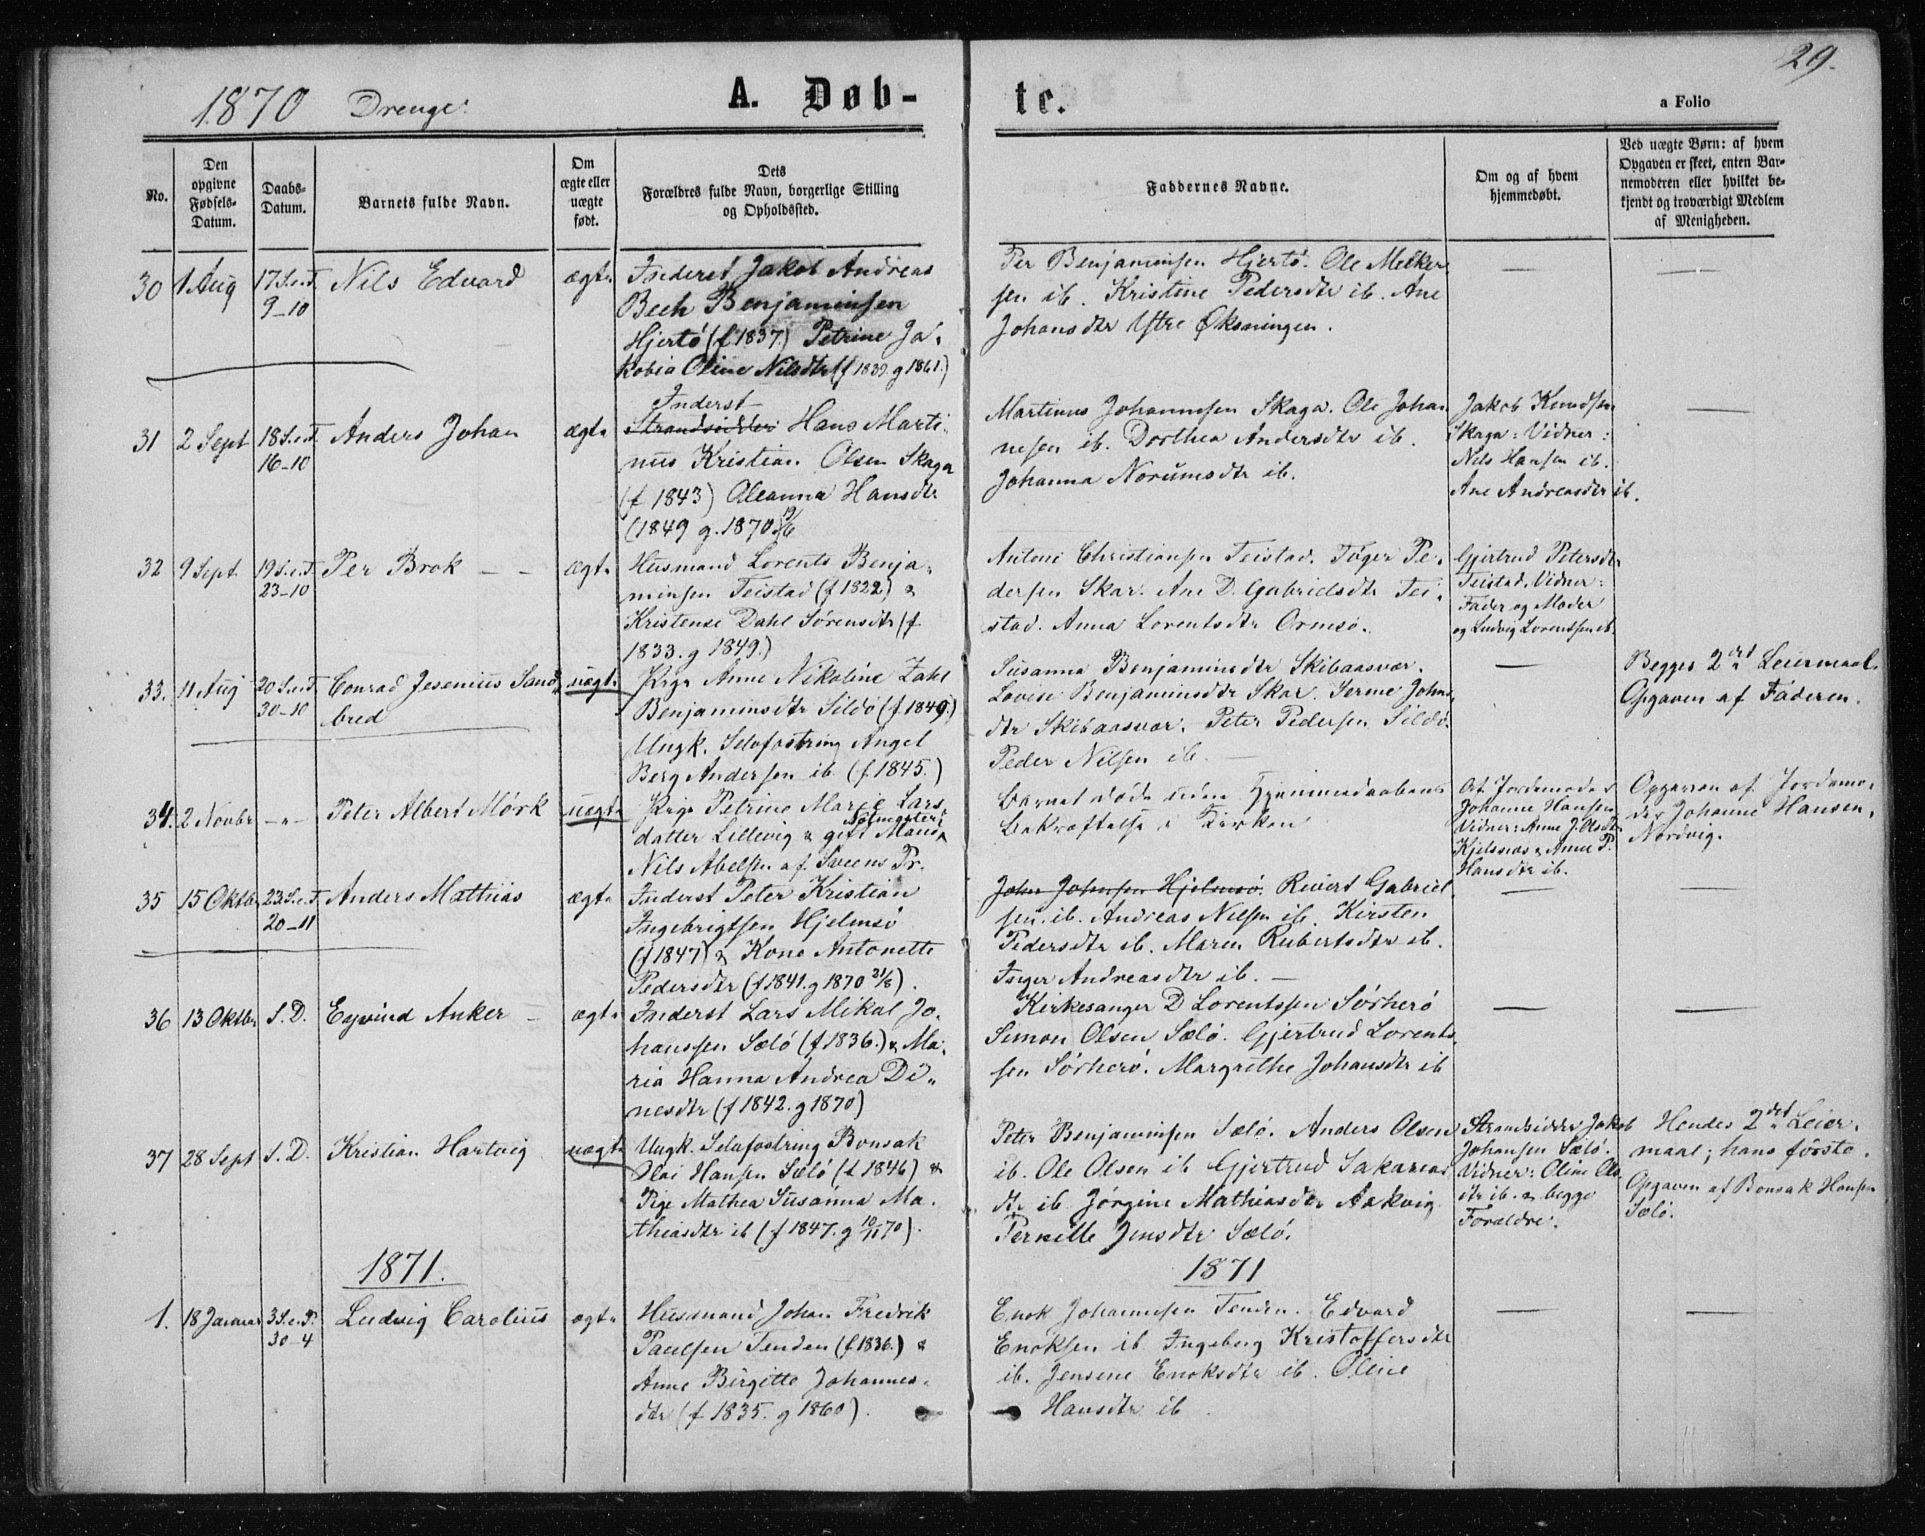 29.
1870 Drenge. A. Døb- te. a Folio
No.
Den opgivne Fødsels-Datum.
Daabs-Datum.
Barnets fulde Navn.
Om ægte eller uægte født.
Dets Forældres fulde Navn, borgerlige Stilling og Opholdssted.
Faddernes Navne.
Om og af hvem hjemmedøbt.
Ved uægte Børn: af hvem Opgaven er skeet, enten Barnemoderen eller hvilket bekjendt og troværdigt Medlem af Menigheden.
30 1 Aug 17 S.e.T. 9-10 Nils Edvard ægte
Inderst Jakob Andreas
Bech Benjaminsen
Hjertö (f 1837.) Petrine Ja-
kobia Oline Nilsdtr (f 1839. g 1861.)
Per Benjaminsen Hjertö. Ole Melker
sen ib. Kristine Pedersdtr ib. Ane
Johansdtr Ytre Øksningen.
—
—
31 2 Sept 18 S.e.T. 16-10 Anders Johan ægte
Inderst
Strandsidder Hans Marti-
nus Kristian Olsen Skaga
(f 1843) Oleanna Hansdtr
(1849 g. 1870 19/6
Martinus Johannesen Skaga. Ole Johan
nesen ib. Dorthea Andersdtr ib.
Johanna Norumsdtr ib.
Jakob Knudsen
Skaga: Vidner:
Nils Hansen ib.
Ane Andreasdtr ib.
—
32 9 Sept 19 S.e.T. 23-10 Per Brok — — ægte
Husmand Lorents Benja-
minsen Teistad (f 1822) &
Kristense Dahl Sörensdtr (f
1833. g 1849.)
Antoni Christiansen Teistad. Töger Pe-
dersen Skar. Ane D. Gabrielsdtr Tei-
stad. Anna Lorentsdtr Ormsö.
Gjertrud Petersdtr
Teistad. Vidner:
Fader og Moder
og Ludvig Lorentsen ib.
33. 11 Aug 20 S.e.T. 30-10 Conrad Jesenius Sand-
bred uægte
Pige Anne Nikoline Zahl
Benjaminsdtr Sildö (f 1849.)
Ungk. Selvfostring Angel
Berg Andersen ib (f. 1845.)
Susanna Benjaminsdtr Skibaasvær.
Lovise Benjaminsdtr Skar. Serine Johns
dtr Skibaasvær. Peter Pedersen Sildö.
Peder Nilsen ib. —
—
Begges 2det Leiermaal.
Opgaven af Faderen.
34. 2 Novbr -„- Peter Albert Mörk uægte
Pige Petrine Marie Lars-
datter Lillevig & gift Mand
Nils Abelsen af Sveens Pr.
Barnet döde uden Hjemmedaabens
Bekræftelse i Kirken
Af Jordemoder
Johanne Hansen
Vidner: Anne J. Olsdtr
Kjelsnæs & Anne P.
Hansdtr ib.
Opgaven af Jordemo-
der Johanne Hansen,
Nordvig.
35 15 Oktbr 23 S.e.T. 20-11 Anders Mathias ægte
Inderst Peter Kristian
Ingebrigtsen Hjelmsö
(f 1847) & Kone Antonette
Pedersdtr (f 1841. g 1870 21/8).
John Johnsen Hjelmsö. Reiert Gabriel
sen ib. Andreas Nilsen ib. Kirsten
Pedersdtr ib. Maren Reiertsdtr ib.
Inger Andreasdtr ib. —
—
—
36 13 Oktbr S.D. Eyvind Anker — ægte
Inderst Lars Mikal Jo-
hansen Sælö (f 1836.) & Ma-
ria Hanna Andrea Di-
nesdtr (f 1842. g 1870)
Kirkesanger D Lorentssen Sörherö
Simon Olsen Sælö. Gjertrud Lorents-
sen Sörherö. Margrethe Johansdtr ib
—
—
37 28 Sept S.D. Kristian Hartvig uægte
Ungk. Selvfostring Bonsak
Olai Hansen Sælö (f 1846) &
Pige Mathea Susanna Ma-
thiasdtr ib (f 1847. g 10/11 70).
Peter Benjaminsen Sælö. Anders Olsen
ib. Ole Olsen ib Gjertrud Sakarias
dtr ib. Jörgine Mathiasdtr Aakvig
Pernille Jensdtr Sælö.
Strandsidder Jakob
Johansen Sælö.
Vidner: Oline Ols
dtr ib. & begge
Forældre.
Hendes 2det Leier-
maal; hans förste.
Opgaven af Bonsak Hansen
Sælö.
1871. 1871
1. 18 Januar 3 S.e.P. 30-4 Ludvig Carolius ægte
Husmand Johan Fredrik
Paulsen Tenden (f 1836.) &
Anne Birgitte Johannes-
dtr (f 1835. g 1860).
Enok Johannesen Tenden. Edvard
Enoksen ib Ingeborg Kristoffersdtr
ib. Jensine Enoksdtr ib. Oline
Hansdtr ib.
—
—